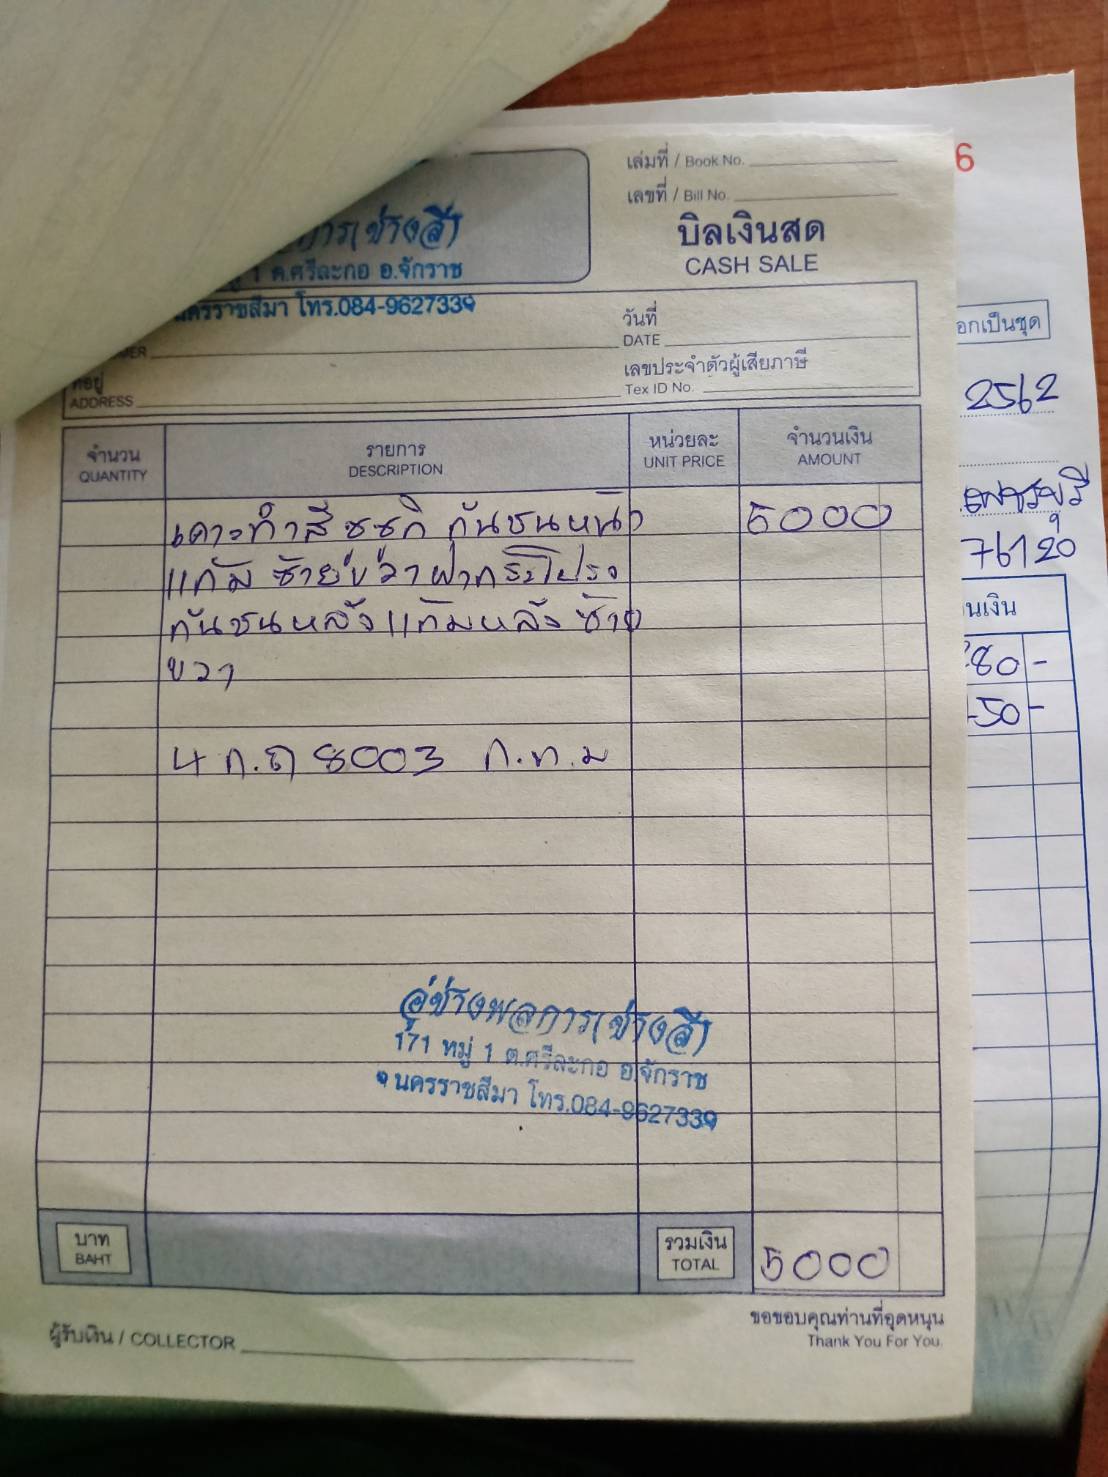 เล่มที่ / Book No.
6
เลขที่ / Bill No.
บิลเงินสด
CASH SALE
การ(ช่างลี)
1 ต.ศรีละกอ อ.จักราช
นครราชสีมา โทร.084-9627339
วันที่
DATE
เลขประจำตัวผู้เสียภาษี
Tex ID No.
ที่อยู่
ADDRESS
อกเป็นชุด
2562
76120
จำนวน
QUANTITY
รายการ
DESCRIPTION
หน่วยละ
UNIT PRICE
จำนวนเงิน
AMOUNT
เคาะทำสี ซูซูกิ กันชนหน้า 5000
แก้ม ซ้าย ขวา ฝากระโปรง
กันชนหลัง แก้มหลัง ซ้าย
ขวา
4 ก.ถ 8003 ก.ท.ม
นเงิน
80 -
50 -
อู่ช่างพลการ(ช่างลี)
171 หมู่ 1 ต.ศรีละกอ อ.จักราช
จ.นครราชสีมา โทร.084-9627339
บาท
BAHT
รวมเงิน
TOTAL
5000
ผู้รับเงิน / COLLECTOR
ขอขอบคุณท่านที่อุดหนุน
Thank You For You.